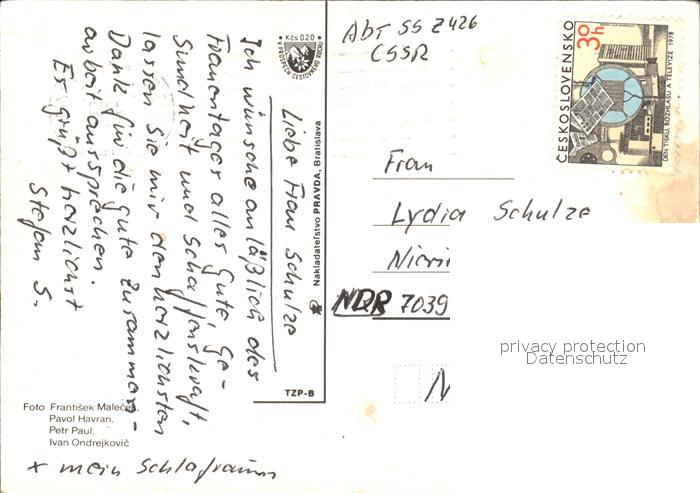 Liebe Frau Schulze
Ich wünsche anläßlich des
Frauentages alles Gute, Ge-
sundheit und Schaffenskraft,
lassen Sie mir den herzlichsten
Dank für die gute Zusammen-
arbeit aussprechen.
Es grüßt herzlichst
Stefan S.
Foto František Malečes,
Pavol Havran,
Petr Paul,
Ivan Ondrejkovič
x mein Schlafraum
Kčs 0.20
Nakladateľstvo PRAVDA, Bratislava
TZP-B
Abt SS Z426
CSSR
ČESKOSLOVENSKO
30h
DEN TISKU, ROZHLASU A TELEVIZE 1978
Frau
Lydia Schulze
NDR 7039
N
privacy protection
Datenschutz